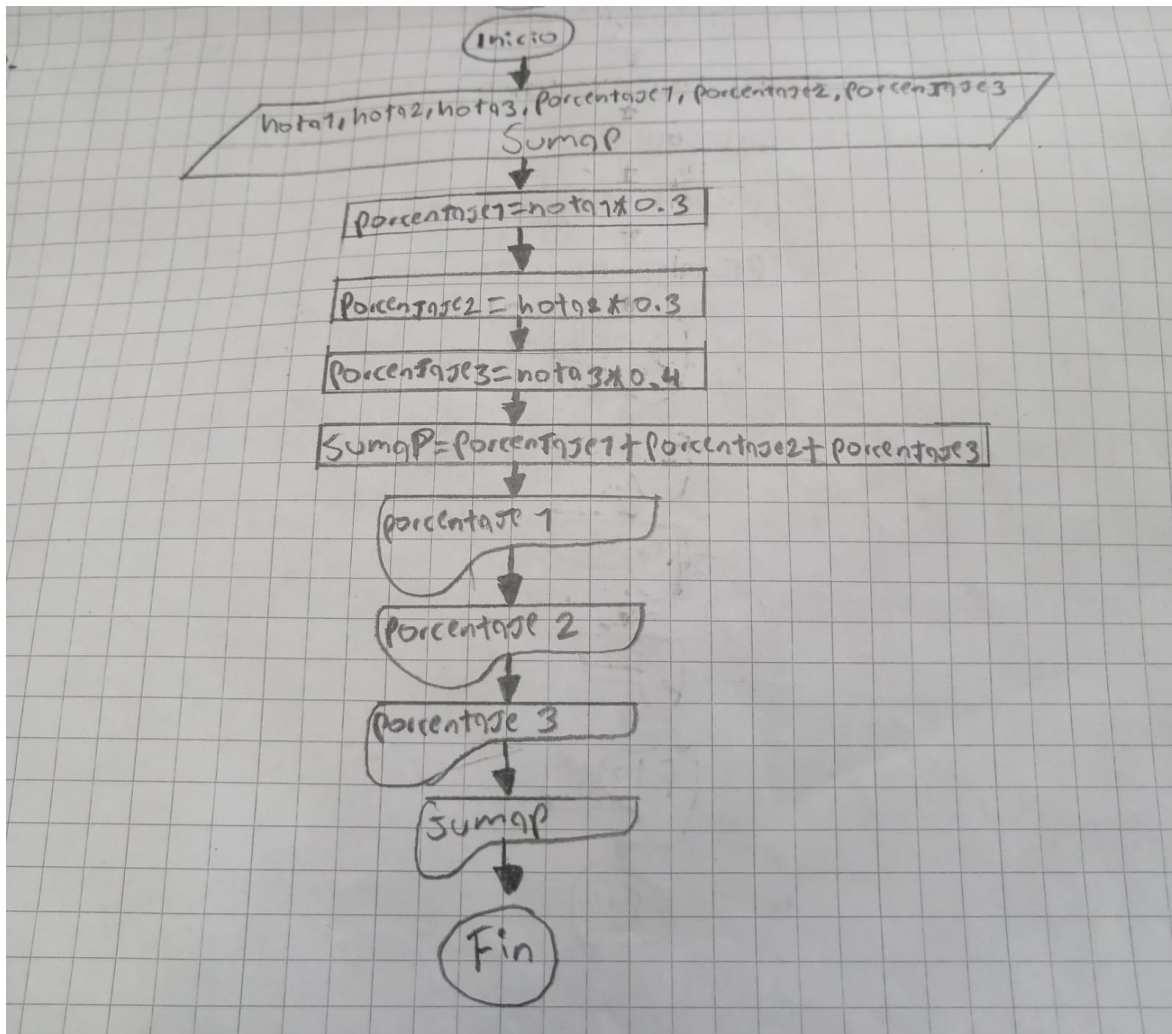 Inicio
nota1, nota2, nota3, Porcentaje1, Porcentaje2, Porcentaje3
SumaP
Porcentaje1=nota1*0.3
Porcentaje2=nota2*0.3
Porcentaje3=nota3*0.4
SumaP=Porcentaje1+Porcentaje2+Porcentaje3
Porcentaje 1
Porcentaje 2
Porcentaje 3
SumaP
Fin